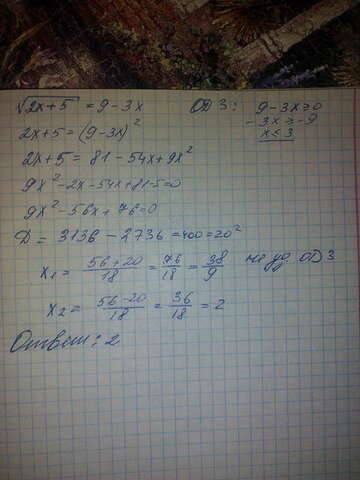 √2x+5 = 9-3x   ОДЗ: 9-3x≥0
-3x ≥ -9
x ≤ 3
2x+5=(9-3x)²
2x+5= 81-54x+9x²
9x²-2x-54x+81-5=0
9x²-56x+76=0
D= 3136-2736=400=20²
x₁= 56+20/18 = 76/18 = 38/9 не уд. ОДЗ
x₂= 56-20/18 = 36/18 = 2
Ответ: 2